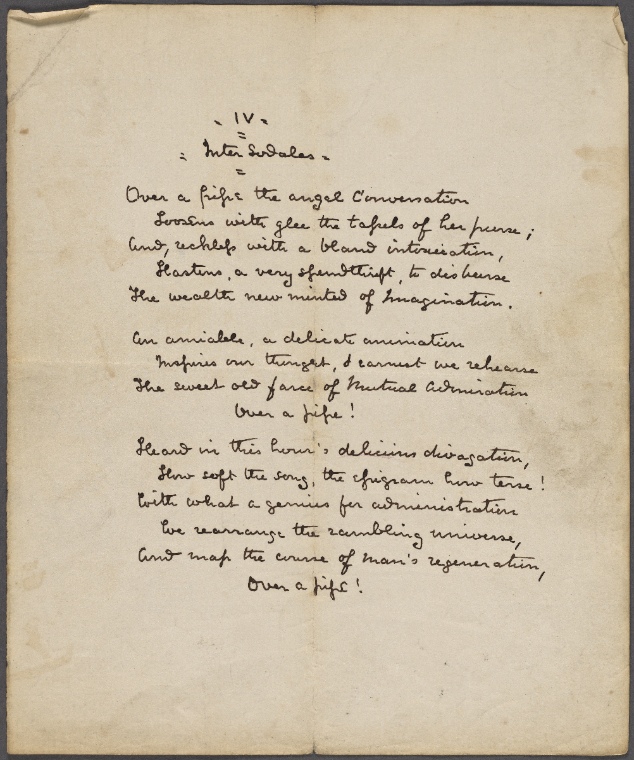 IV
Inter Sodales
Over a pipe the angel Conversation
Loosens with glee the tassels of her purse;
And, reckless with a bland intoxication,
Hastens, a very spendthrift, to disburse
The wealth new minted of Imagination.
An amiable, a delicate animation
Inspires our thought, & earnest we rehearse
The sweet old farce of Mutual Admiration
Over a pipe!
Heard in this hour's delicious divagation,
How soft the song, the epigram how terse!
With what a genius for administration
We rearrange the rambling universe,
And map the course of man's regeneration,
Over a pipe!